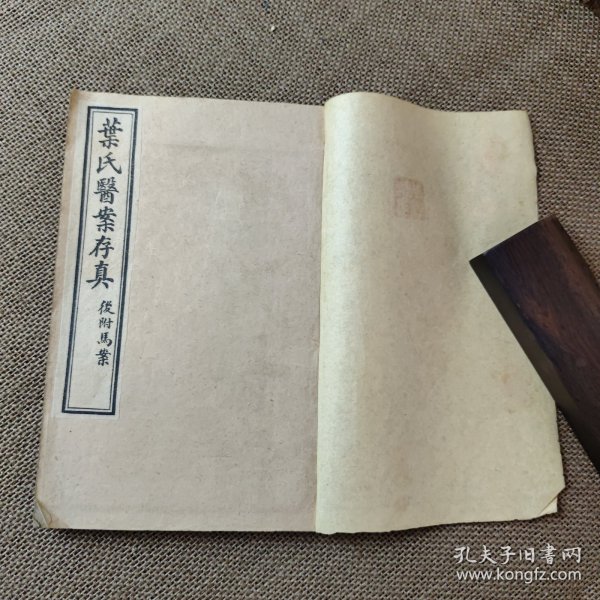 葉氏醫案存真
後附馬案
孔夫子旧书网
www.kongfz.com